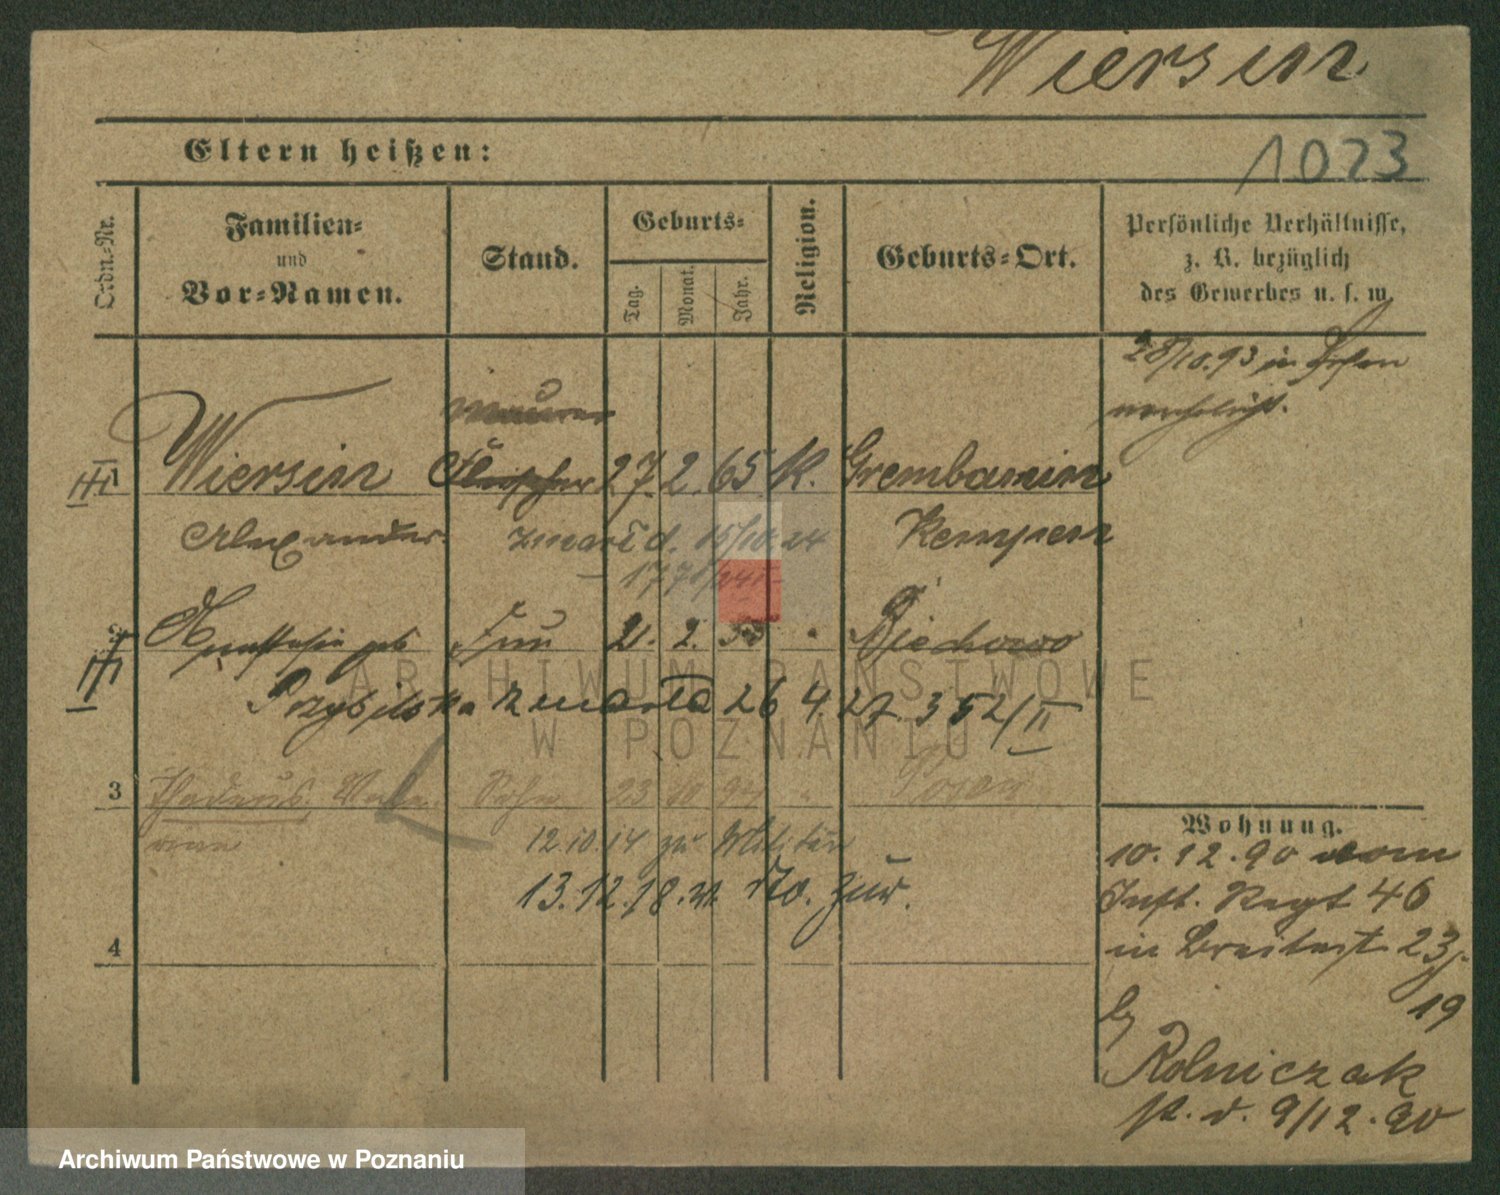 Wiersin
1023
Eltern heißen:
Ordn.-Nr.
Familien-
und
Vor-Namen.
Stand.
Geburts-
Tag.
Monat.
Jahr.
Religion.
Geburts-Ort.
Persönliche Verhältnisse,
z. B. bezüglich
des Gewerbes u. s. w.
28/10.93 in Posen
verehelicht.
Maurer
1 Wiersin Fleischer 27. 2. 65 K. Grembanin
Alexander Kempen
zmarł d. 15/10 24
2 Anastasia geb Frau 21. 2. Biechowo
Przybilska zmarła 26 4. 27. 352/II
3 Thadeus Sohn 23 10 94 Posen
12.10.14 zu Militär
13.12.18. v. zur.
4
Wohnung.
10.12.90 vom
Inft. Regt 46
in Breitestr 23
19
Rolniczak
p. d. 9/12.90
ARCHIWUM PAŃSTWOWE
W POZNANIU
Archiwum Państwowe w Poznaniu